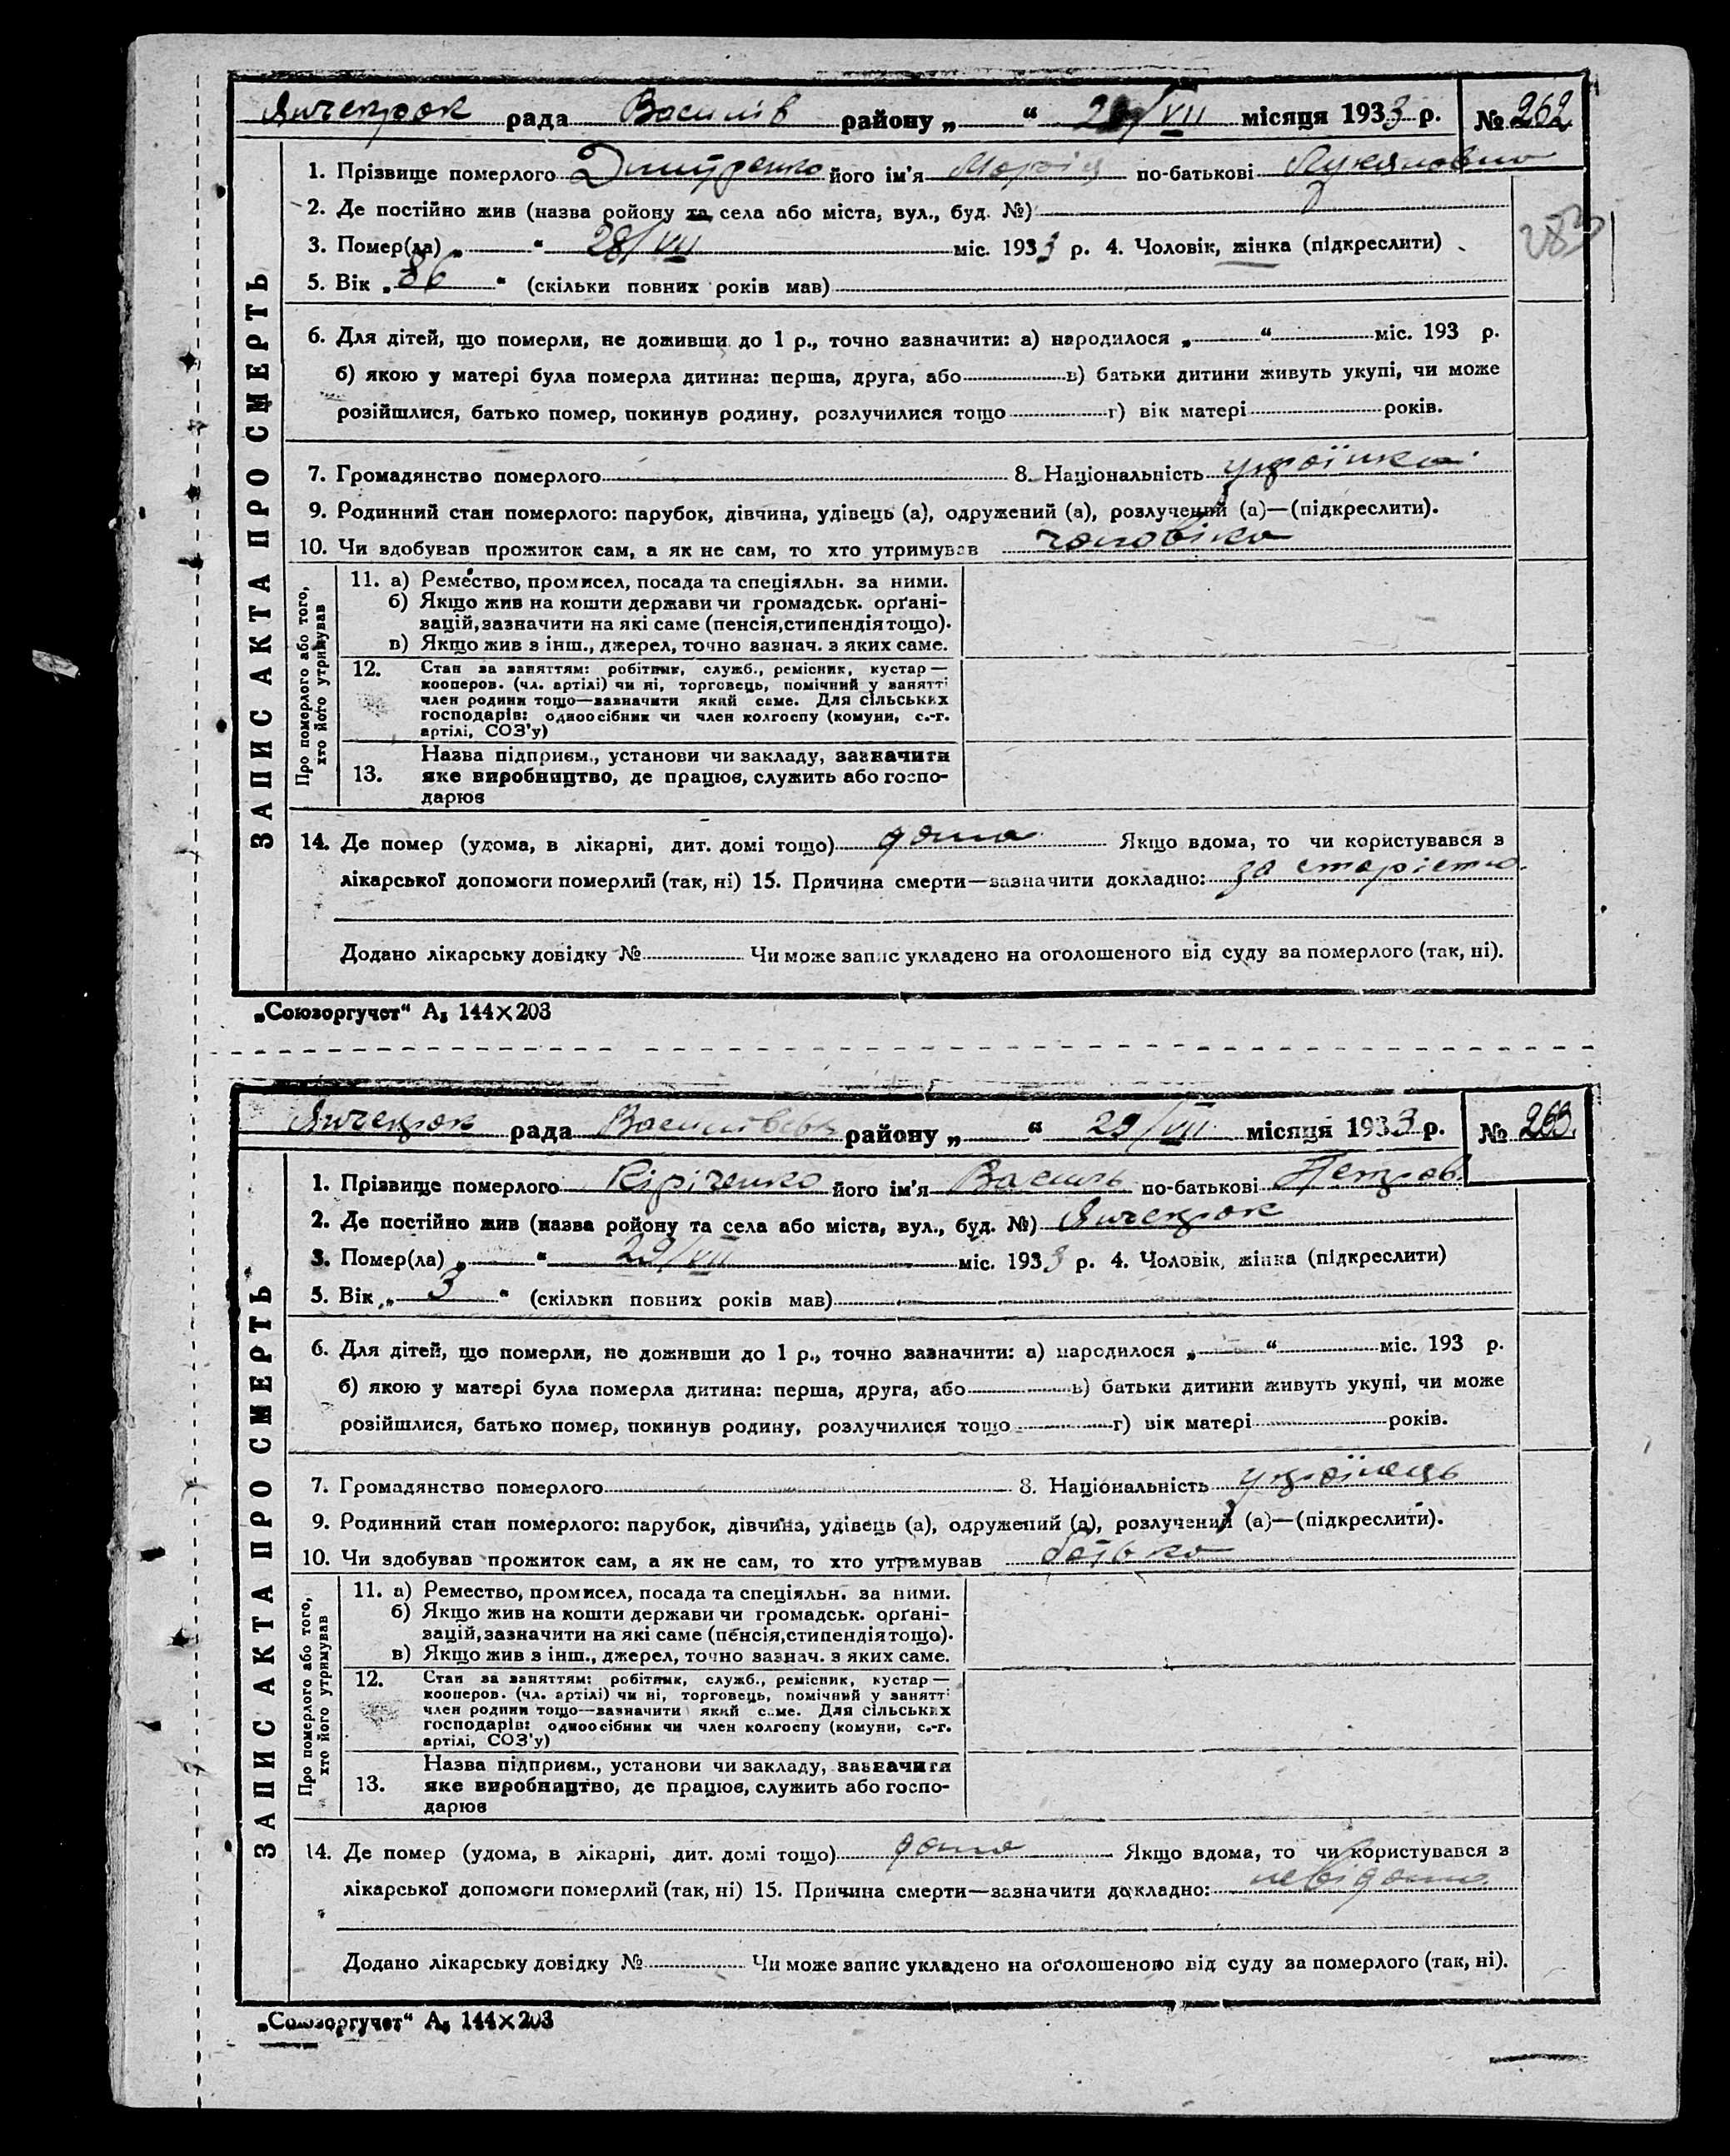 Янчекрок рада Василів району „ “ 29/VII місяця 1933 р. № 262
ЗАПИС АКТА ПРО СМЕРТЬ
1. Прізвище померлого Дмитренко його ім'я Марфія по-батькові Лукяновна
2. Де постійно жив (назва ройону та села або міста, вул., буд. №)
3. Помер(ла) „ “ 28/VII міс. 1933 р. 4. Чоловік, жінка (підкреслити)
5. Вік „ 86 “ (скільки повних років мав)
6. Для дітей, що померли, не доживши до 1 р., точно зазначити: а) народилося „ “ міс. 193 р.
б) якою у матері була померла дитина: перша, друга, або в) батьки дитини живуть укупі, чи може
розійшлися, батько помер, покинув родину, розлучилися тощо г) вік матері років.
7. Громадянство померлого 8. Національність українка
9. Родинний стан померлого: парубок, дівчина, удівець (а), одружений (а), розлучений (а)—(підкреслити).
10. Чи здобував прожиток сам, а як не сам, то хто утримував чоловіка
Про померлого або того,
хто його утримував
11. а) Ремество, промисел, посада та спеціяльн. за ними.
б) Якщо жив на кошти держави чи громадськ. орґані-
зацій, зазначити на які саме (пенсія, стипендія тощо).
в) Якщо жив з інш., джерел, точно зазнач. з яких саме.
12. Стан за заняттям: робітник, служб., ремісник, кустар —
кооперов. (чл. артілі) чи ні, торговець, помічний у занятті
член родини тощо—зазначити який саме. Для сільських
господарів: одноосібник чи член колгоспу (комуни, с.-г.
артілі, СОЗ'у)
13. Назва підприєм., установи чи закладу, зазначити
яке виробництво, де працює, служить або госпо-
дарює
14. Де помер (удома, в лікарні, дит. домі тощо) дома Якщо вдома, то чи користувався з
лікарської допомоги померлий (так, ні) 15. Причина смерти—зазначити докладно: за старістю.
Додано лікарську довідку № Чи може запис укладено на оголошеного від суду за померлого (так, ні).
„Союзоргучет“ А₅ 144×203
Янчекрок рада Василівськ району „ “ 29/VII місяця 1933 р. № 263.
ЗАПИС АКТА ПРО СМЕРТЬ
1. Прізвище померлого Кіріченко його ім'я Василь по-батькові Петров.
2. Де постійно жив (назва ройону та села або міста, вул., буд. №) Янчекрок
3. Помер(ла) „ “ 29/VII міс. 1933 р. 4. Чоловік, жінка (підкреслити)
5. Вік „ 3 “ (скільки повних років мав)
6. Для дітей, що померли, не доживши до 1 р., точно зазначити: а) народилося „ “ міс. 193 р.
б) якою у матері була померла дитина: перша, друга, або в) батьки дитини живуть укупі, чи може
розійшлися, батько помер, покинув родину, розлучилися тощо г) вік матері років.
7. Громадянство померлого 8. Національність українець
9. Родинний стан померлого: парубок, дівчина, удівець (а), одружений (а), розлучений (а)—(підкреслити).
10. Чи здобував прожиток сам, а як не сам, то хто утримував батько
Про померлого або того,
хто його утримував
11. а) Ремество, промисел, посада та спеціяльн. за ними.
б) Якщо жив на кошти держави чи громадськ. орґані-
зацій, зазначити на які саме (пенсія, стипендія тощо).
в) Якщо жив з інш., джерел, точно зазнач. з яких саме.
12. Стан за заняттям: робітник, служб., ремісник, кустар —
кооперов. (чл. артілі) чи ні, торговець, помічний у занятті
член родини тощо—зазначити який саме. Для сільських
господарів: одноосібник чи член колгоспу (комуни, с.-г.
артілі, СОЗ'у)
13. Назва підприєм., установи чи закладу, зазначити
яке виробництво, де працює, служить або госпо-
дарює
14. Де помер (удома, в лікарні, дит. домі тощо) дома Якщо вдома, то чи користувався з
лікарської допомоги померлий (так, ні) 15. Причина смерти—зазначити докладно: невідомо
Додано лікарську довідку № Чи може запис укладено на оголошеного від суду за померлого (так, ні).
„Союзоргучет“ А₅ 144×203